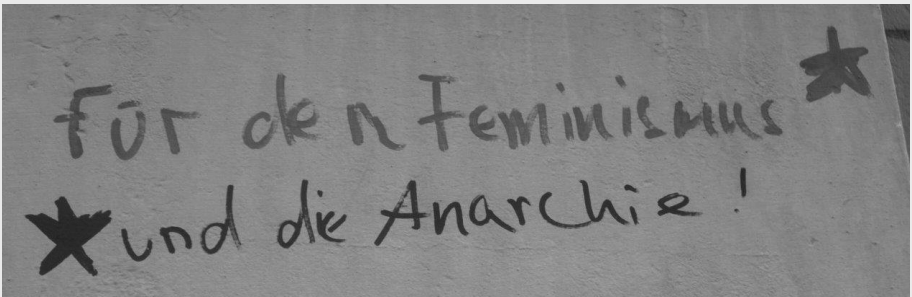 Für den Feminismus
und die Anarchie!